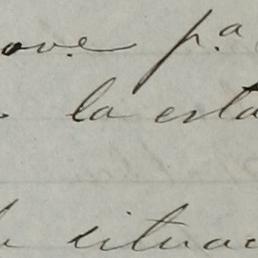 ove p.a
la esta
la situac